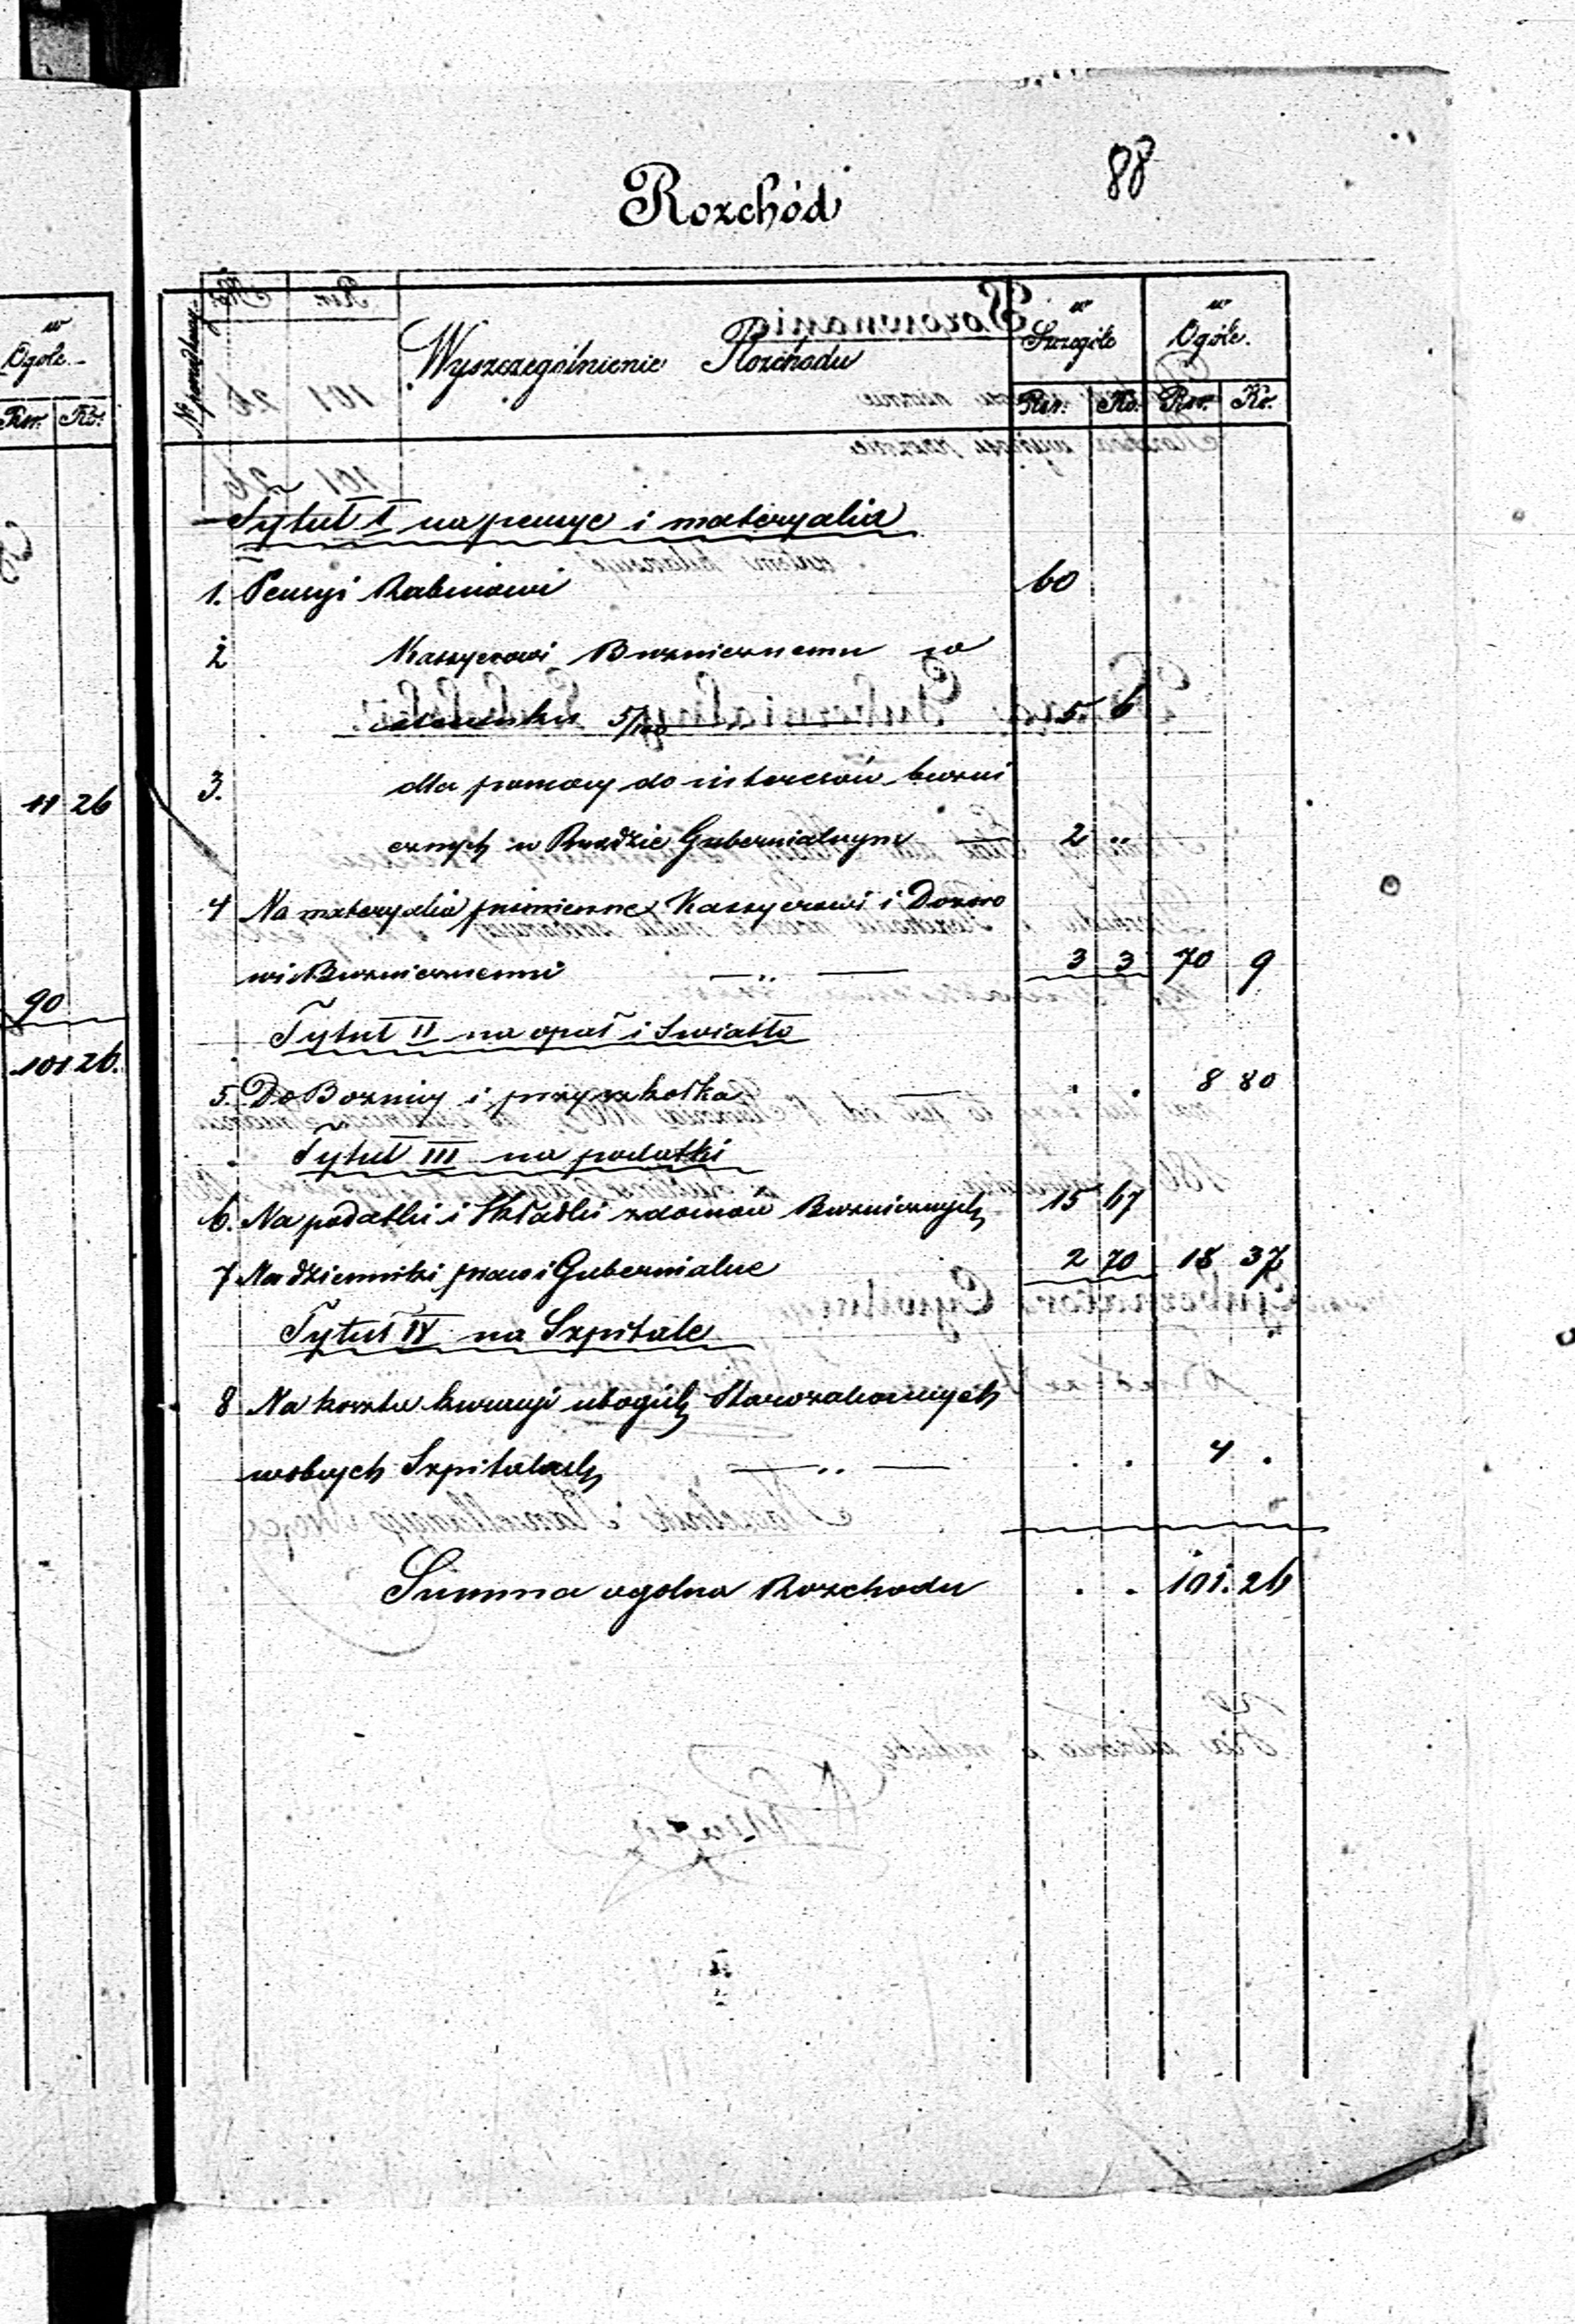 88
Rozchód
w
Ogóle.
Rsr. Ko.
11 26
90
101 26.
№ porządkowy
Wyszczególnienie Rozchodu
w
Szczególe
w
Ogóle.
Rsr. Ko. Rsr. Ko.
Tytuł I na pensye i materyalia
1. Pensyi Rabinowi 60
2 Kassyerowi Bożniczemu w
stosunku 5/100 5. 6
3. dla pomocy do interesów bożni
cznych w Rządzie Gubernialnym 2 "
4 Na materyalia piśmienne Kassyerowi i Dozoro
wi Bożnicznemu — " — 3 3 70 9
Tytuł II na opał i Swiatło
5. Do Bożnicy i przyszkołka . . 8 80
Tytuł III na podatki
6. Na podatki i Składki z domów Bożnicznych 15 67
7 Na dzienniki praw i Gubernialne 2 70 18 37
Tytuł IV na Szpitale
8 Na koszta kuracyi ubogich Starozakonnych
w obcych Szpitalach — " — . . 4 .
Summa ogolna Rozchodu . . 101. 26